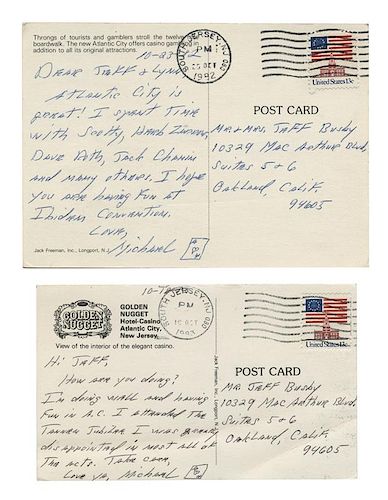 Throngs of tourists and gamblers stroll the twelve
boardwalk. The new Atlantic City offers casino gambling in
addition to all its original attractions.
SOUTH JERSEY, NJ 080
PM
25 OCT
1982
United States 13c
DEAR JAFF & Lynn,
Atlantic City is
great! I spent Time
with Scotty, Herb Zarrow,
Dave Roth, Jack Chanin
and many others. I hope
you are having Fun at
Ibidem Convention.
Love,
Michael
POST CARD
MR. & MRS. JAFF Busby
10329 MAC Arthur Blvd.
Suites 5 & 6
Oakland, Calif.
94605
Jack Freeman, Inc., Longport, N.J.
GOLDEN
NUGGET
GOLDEN
NUGGET
Hotel-Casino
Atlantic City,
New Jersey.
View of the interior of the elegant casino.
SOUTH JERSEY, NJ 080
PM
United States 13c
Hi JAFF,
How are you doing?
I'm doing well and having
Fun in A.C. I attended the
Tannen Jubilee. I was greatly
disappointed in most all of
the acts. Take care,
Love ya, Michael
Jack Freeman, Inc., Longport, N.J.
POST CARD
MR. JAFF Busby
10329 MAC Arthur Blvd.
Suites 5 & 6
Oakland, Calif.
94605